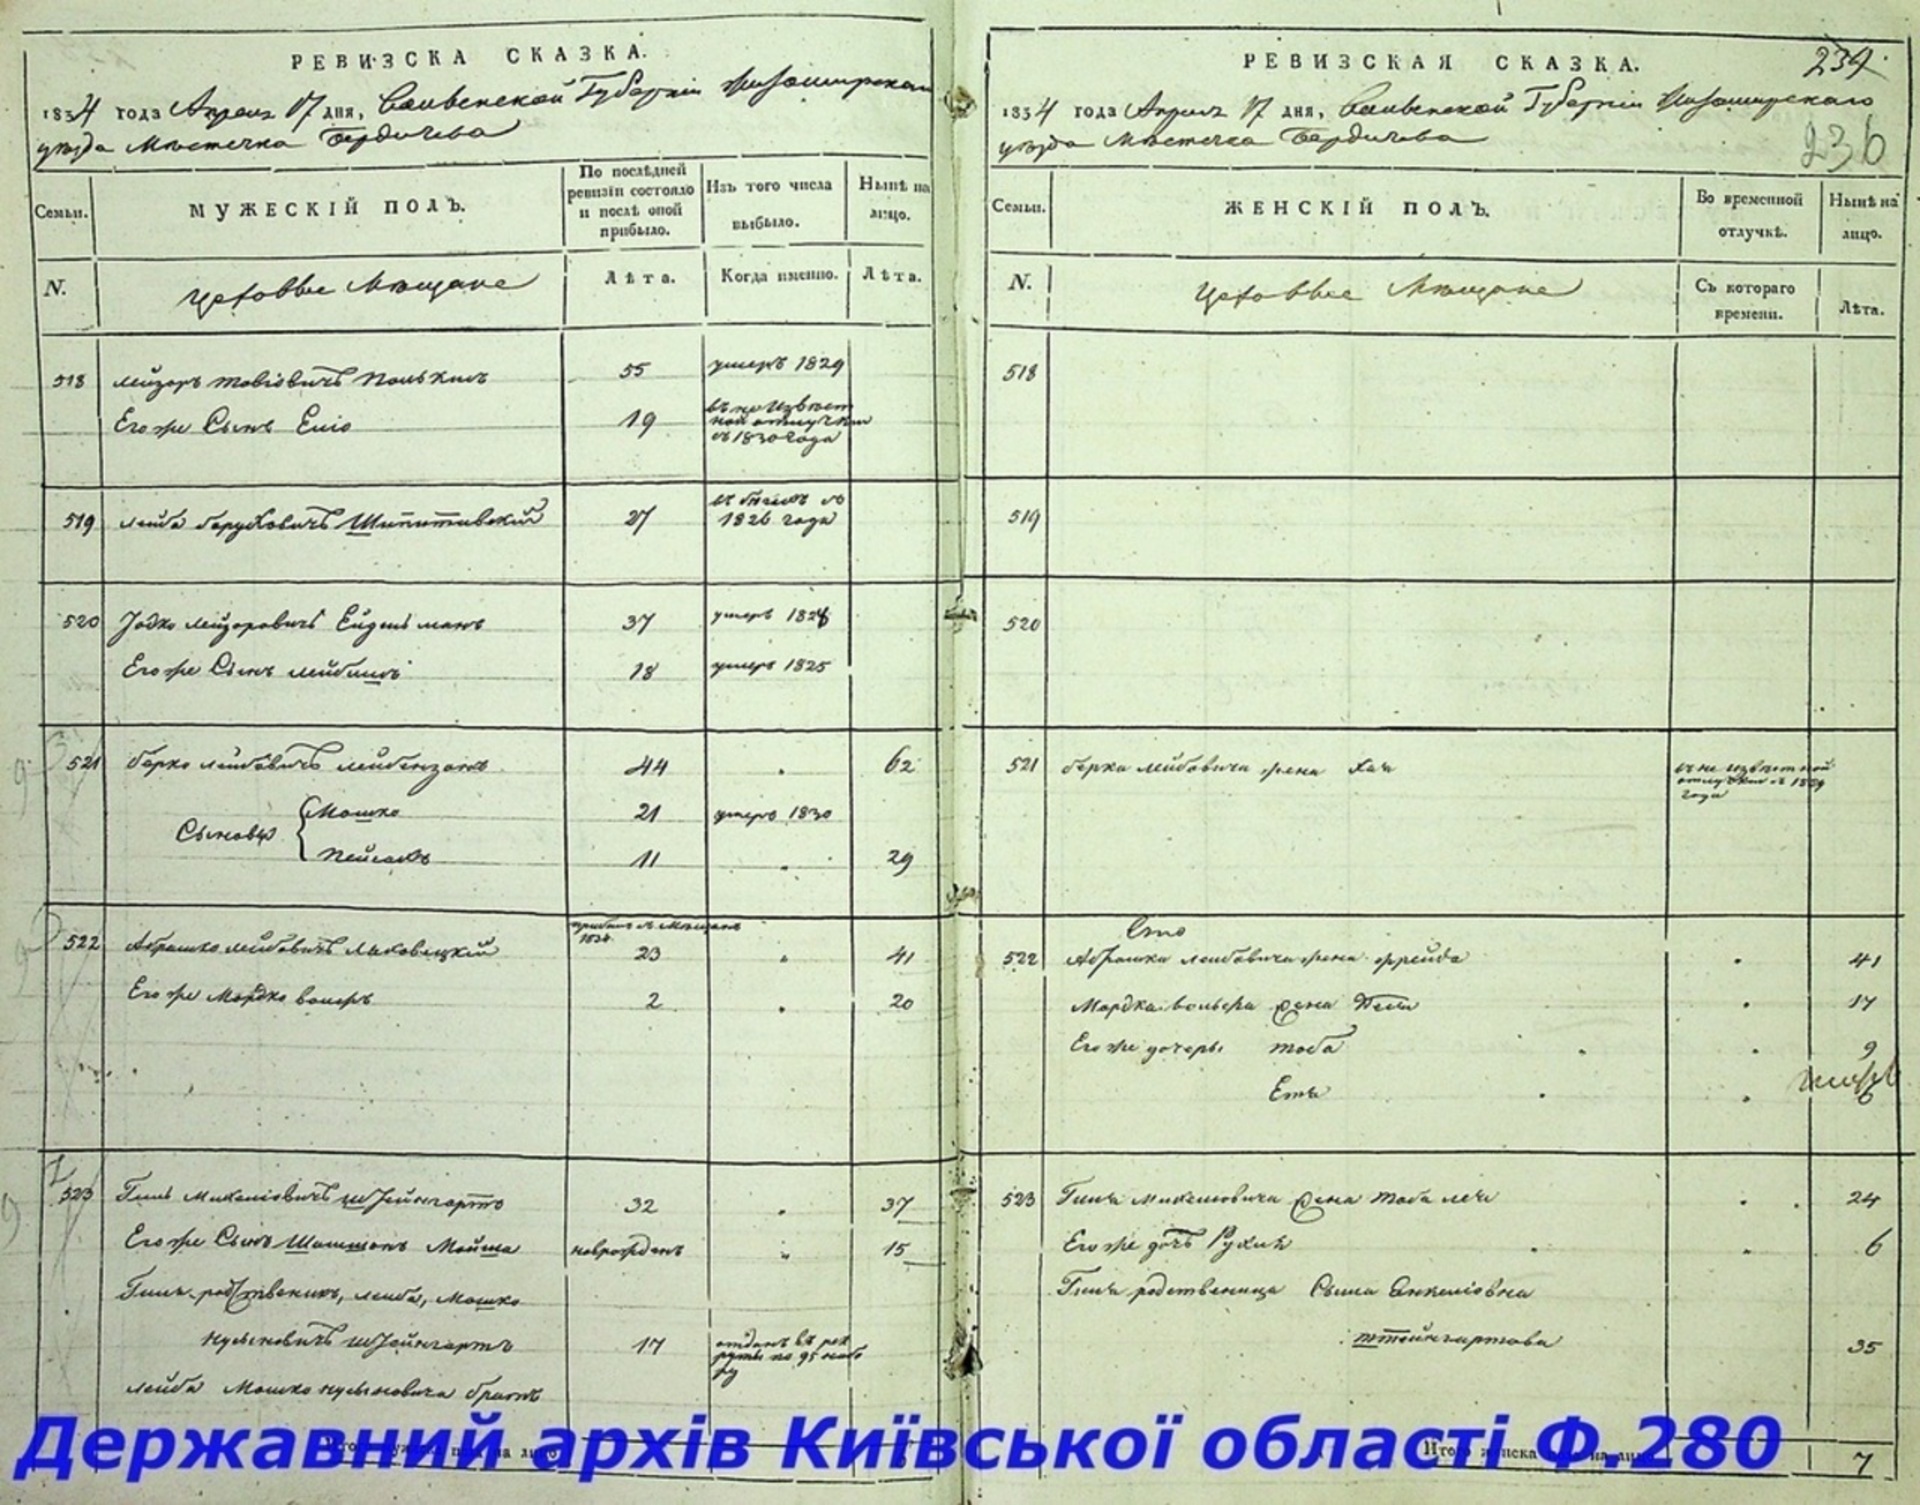 РЕВИЗСКА СКАЗКА.
1834 года Апреля 17 дня, Волынской Губернии Житомирскаго
уезда Местечка Бердичева
Семьи.
МУЖЕСКІЙ ПОЛЪ.
По послѣдней
ревизіи состояло
и послѣ оной
прибыло.
Изъ того числа
выбыло.
Нынѣ на
лицо.
N.
Цеховые Мещане
Лѣта.
Когда именно.
Лѣта.
518 Лейзоръ Товіовичъ 55 умеръ 1829
Его же Сынъ Еліо 19 въ неизвест
ной отлучки
съ 1830 года
519 Лейба Баруховичъ Шипитовскій 27 въ бегахъ съ
1826 года
520 Іодко Лейзоровичъ 37 умеръ 182
Его же Сынъ 18 умеръ 1825
521 Берко Лейбовичъ Лейбензонъ 44 62
Сыновья Мошко 21 умеръ 1830
Пейсахъ 11 29
прибылъ съ Мещанъ
1834
522 Абрашко Лейбовичъ Маковецкій 23 41
Его же Мордко Вольфъ 2 20
523 Гиль Михеліовичъ Штейнгартъ 32 37
Его же Сынъ Шлиома Мойша новрожденъ 15
Гиля родственикъ, Лейба, Мошко
Нусыновичъ Штейнгартъ 17 отданъ въ рек
руты по 95 набо
ру
Лейба Мошко Нусыновича братъ
РЕВИЗСКАЯ СКАЗКА.
239
1834 года Апреля 17 дня, Волынской Губерніи Житомирскаго
уезда Местечка Бердичева
236
Семьи.
ЖЕНСКІЙ ПОЛЪ.
Во временной
отлучкѣ.
Нынѣ на
лицо.
N.
Цеховые Мещане
Съ котораго
времени.
Лѣта.
518
519
520
521 Берка Лейбовича жена Хая въ неизвестной
отлучки съ 1829
года
522 Абрашка Лейбовича жена Фрейда 41
Мордка Вольфа жена Песя 17
Его же дочеры Тоба 9
Етя 6
523 Гиля Михелиовича жена Тоба Лея 24
Его же дочь Рухля 6
Гиля родственица Сыма Янкеліовна
Штейнгартова 35
Итого женска на лицо 7
Державний архів Київської області Ф.280